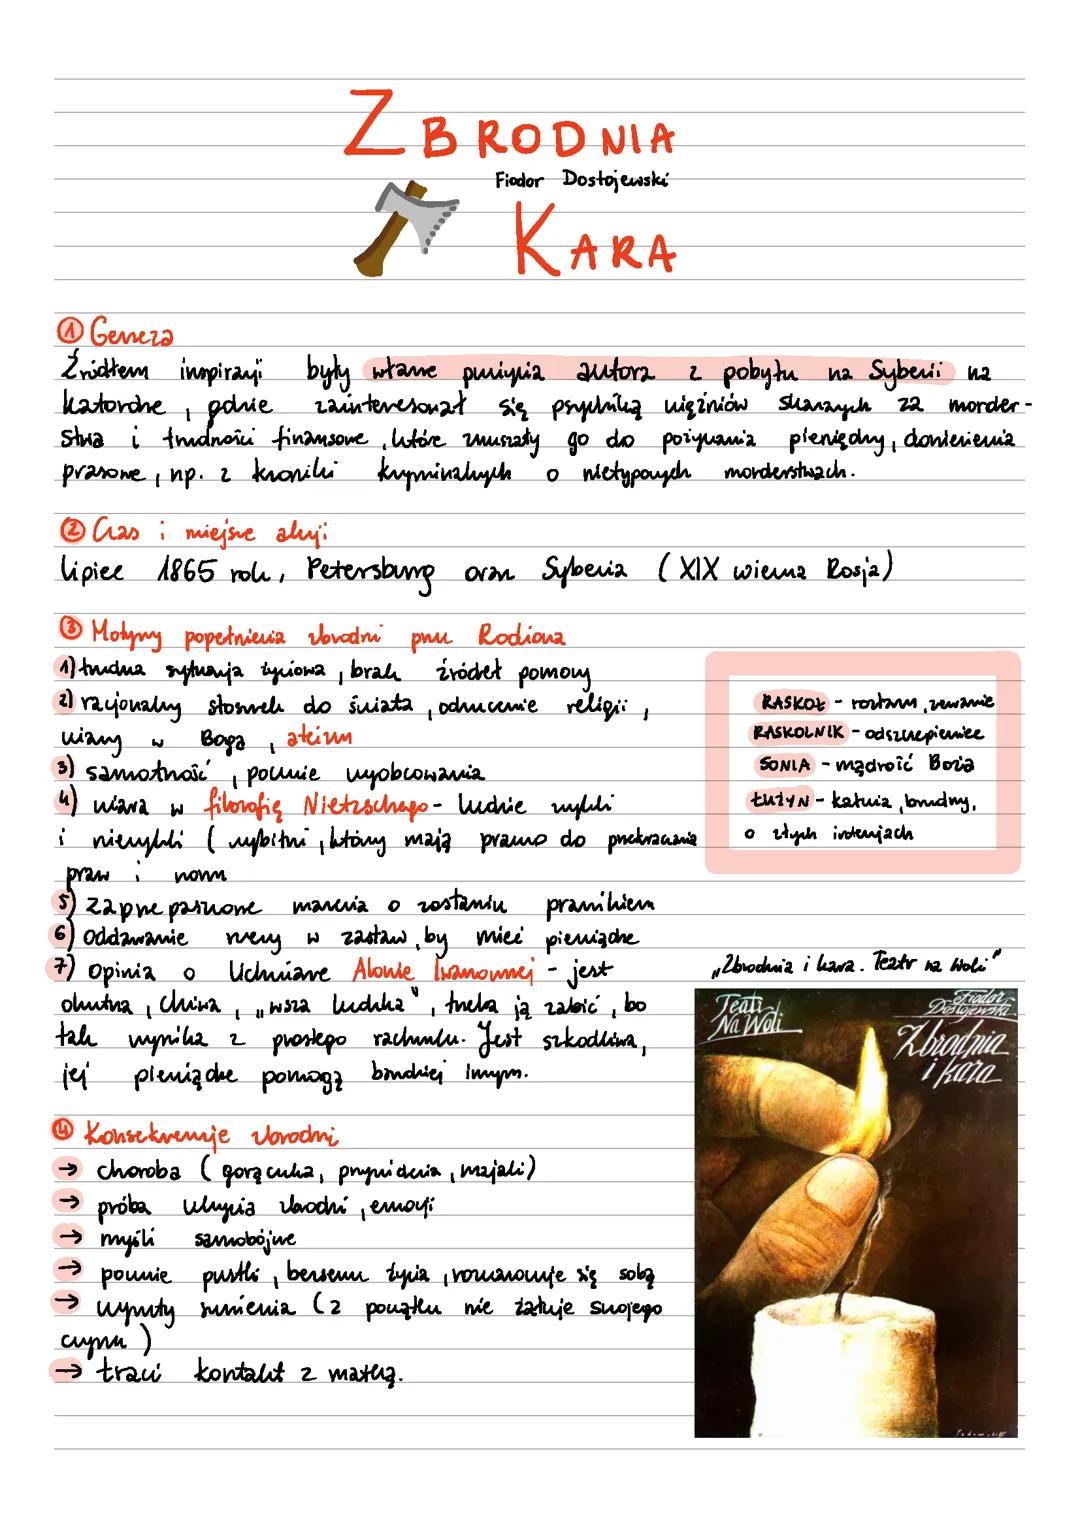 ZBRODNIA
Fiodor Dostojewski
KARA
① Geneza
Źródłem inspiracji były własne przeżycia autora z pobytu na Syberii na
katordze, gdzie zainteresował się psychiką więźniów skazanych za morder-
stwa i trudności finansowe, które zmuszały go do pożyczania pieniędzy, doniesienia
prasowe, np. z kroniki kryminalnych o nietypowych morderstwach.
② Czas i miejsce akcji
lipiec 1865 roku, Petersburg oraz Syberia (XIX wieczna Rosja)
③ Motywy popełnienia zbrodni przez Rodiona
1) trudna sytuacja życiowa, brak źródeł pomocy
2) racjonalny stosunek do świata, odrzucenie religii,
wiary w Boga, ateizm
3) samotność, poczucie wyobcowania
4) wiara w filozofię Nietzschego - ludzie zwykli
i niezwykli (wybitni, którzy mają prawo do przekraczania
praw i norm
5) zaprzepaszczone marzenia o zostaniu prawnikiem
6) oddawanie rzeczy w zastaw, by mieć pieniądze
7) opinia o lichwiarce Alonie Iwanownej - jest
okrutna, chciwa, „wsza ludzka", trzeba ją zabić, bo
tak wynika z prostego rachunku. Jest szkodliwa,
jej pieniądze pomogą bardziej innym.
RASKOŁ - rozłam, zerwanie
RASKOLNIK - odszczepieniec
SONIA - mądrość Boża
ŁUŻYN - kałuża, brudny,
o złych intencjach
④ Konsekwencje zbrodni
→ choroba (gorączka, przywidzenia, majaki)
→ próba ukrycia zbrodni, emocji
→ myśli samobójcze
→ poczucie pustki, bezsensu życia, rozczarowuje się sobą
→ wyrzuty sumienia (z początku nie żałuje swojego
czynu)
→ traci kontakt z matką.
„Zbrodnia i kara. Teatr na Woli"
Teatr
Na Woli
Fiodor
Dostojewski
Zbrodnia
i kara